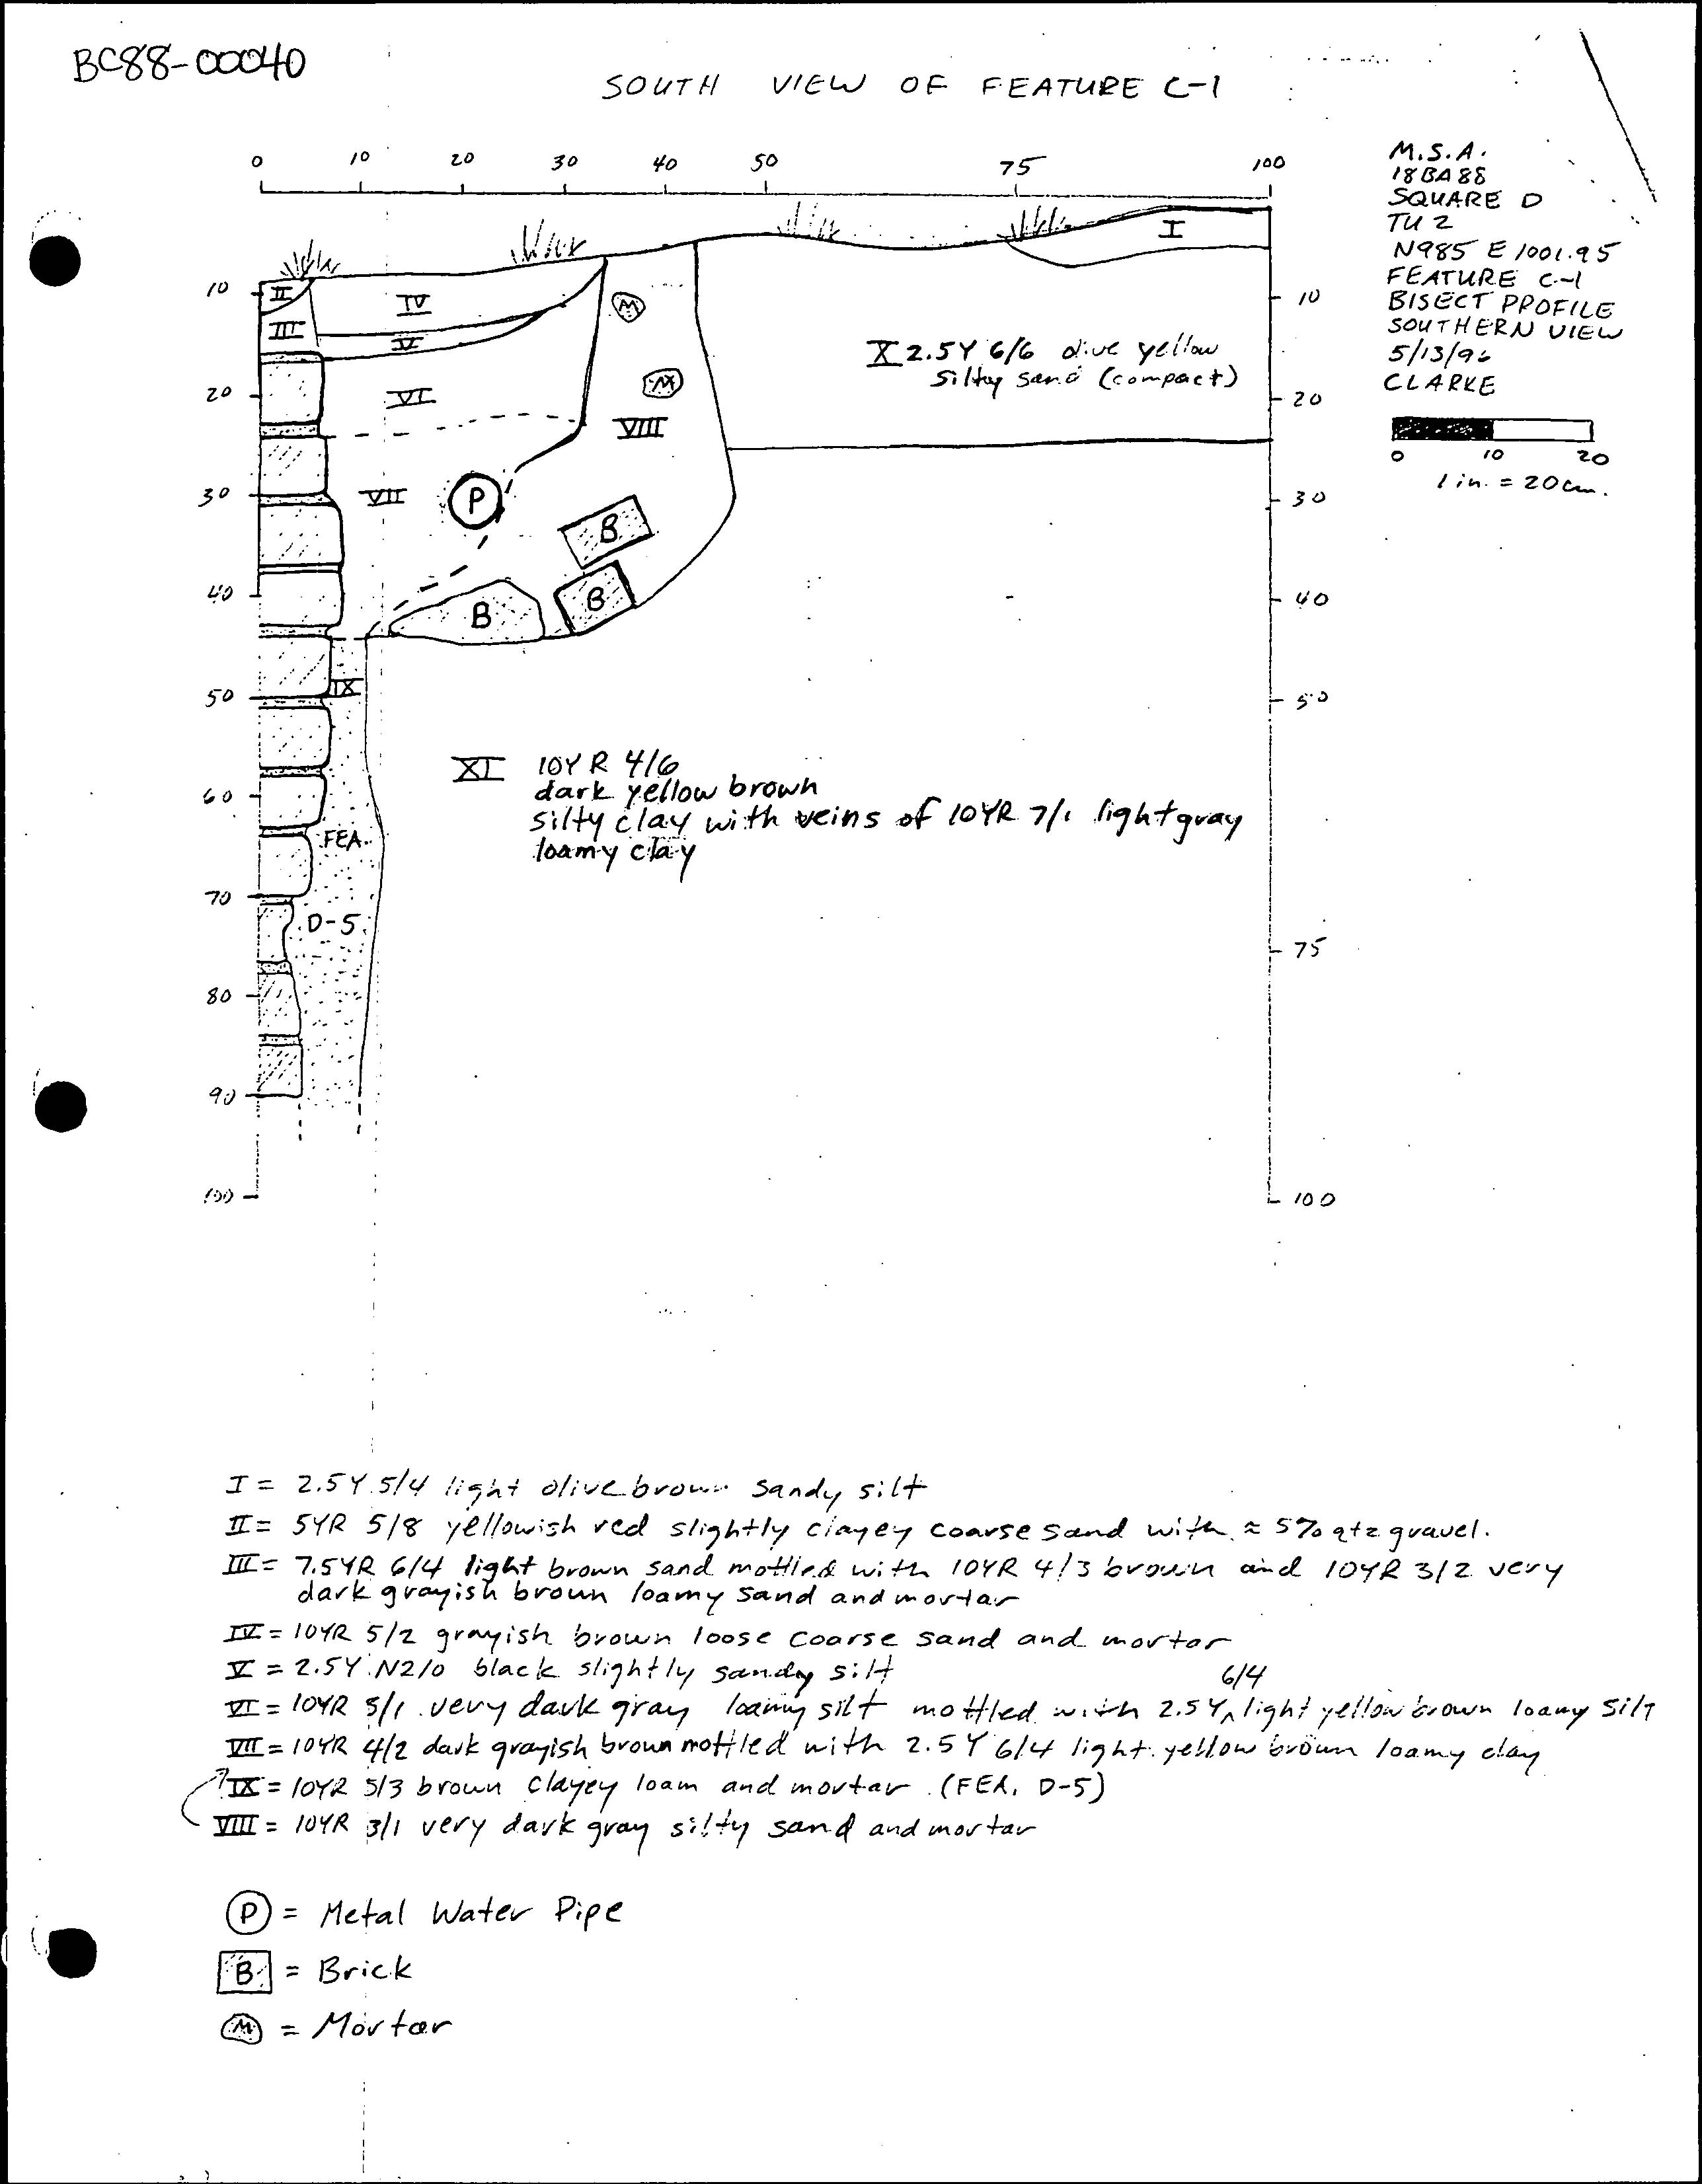 BC88-00040
SOUTH VIEW OF FEATURE C-1
0 10 20 30 40 50 75 100
M.S.A.
18BA88
SQUARE D
TU 2
N985 E 1001.95
FEATURE C-1
BISECT PROFILE
SOUTHERN VIEW
5/13/96
CLARKE
0 10 20
1 in. = 20cm.
I
II
IV
M
10
10
III
V
X 2.5Y 6/6 olive yellow
silty sand (compact)
M
20
VI
20
VIII
30
VII
P
30
B
40
B
B
40
50
IX
50
XI 10YR 4/6
dark yellow brown
silty clay with veins of 10YR 7/1 light gray
loamy clay
60
FEA.
70
D-5
75
80
90
100
100
I = 2.5Y 5/4 light olive brown sandy silt
II = 5YR 5/8 yellowish red slightly clayey coarse sand with ≈ 5% qtz gravel.
III = 7.5YR 6/4 light brown sand mottled with 10YR 4/3 brown and 10YR 3/2 very
dark grayish brown loamy sand and mortar
IV = 10YR 5/2 grayish brown loose coarse sand and mortar
V = 2.5Y N2/0 black slightly sandy silt
6/4
VI = 10YR 3/1 very dark gray loamy silt mottled with 2.5Y^ light yellow brown loamy silt
VII = 10YR 4/2 dark grayish brown mottled with 2.5Y 6/4 light yellow brown loamy clay
IX = 10YR 5/3 brown clayey loam and mortar (FEA. D-5)
VIII = 10YR 3/1 very dark gray silty sand and mortar
P = Metal Water Pipe
B = Brick
M = Mortar